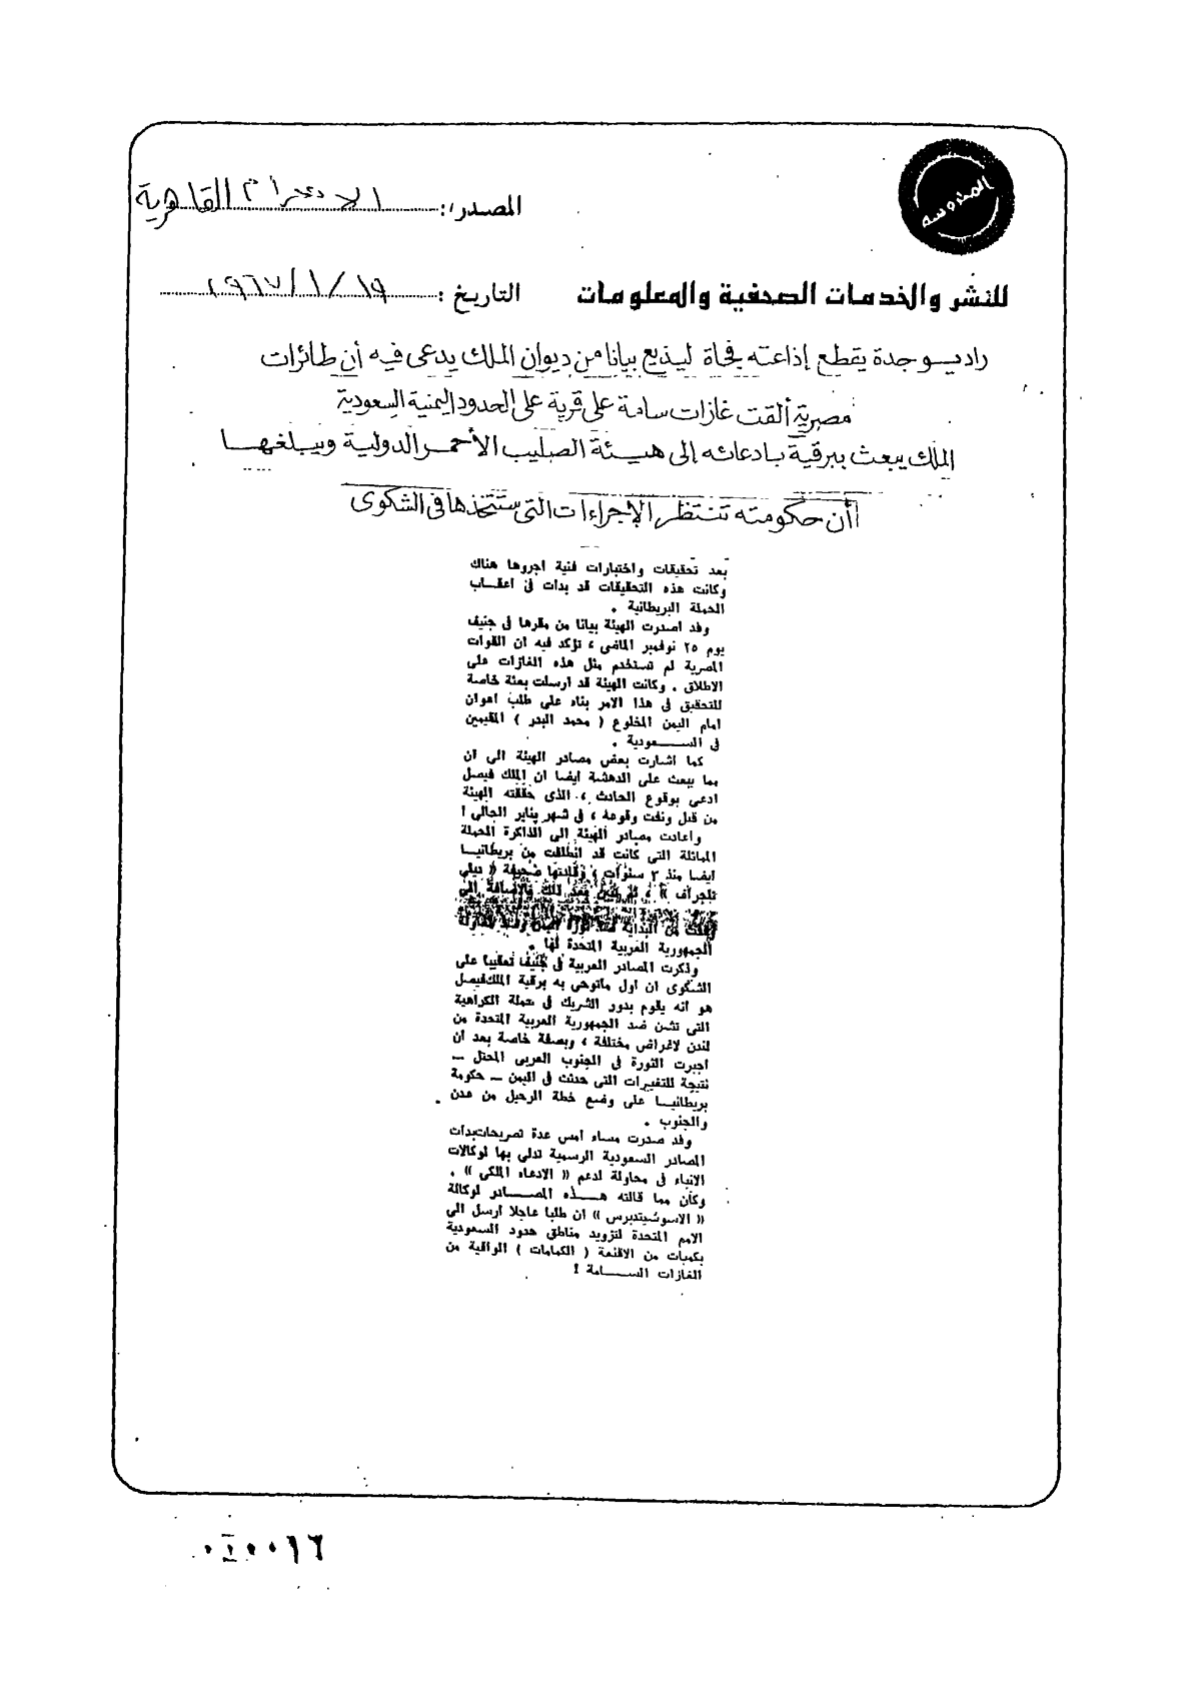 المحروسة
المصدر: الاهرام القاهرية
للنشر والخدمات الصحفية والمعلومات
التاريخ: ١٩٦٧/١/١٩
راديو جدة يقطع إذاعته فجأة ليذيع بيانا من ديوان الملك يدعى فيه أن طائرات
مصرية ألقت غازات سامة على قرية على الحدود اليمنية السعودية
الملك يبعث ببرقية بادعائه إلى هيئة الصليب الأحمر الدولية ويبلغها
أن حكومته تنتظر الإجراءات التى ستتخذها فى الشكوى
بعد تحقيقات واختبارات فنية اجروها هناك
وكانت هذه التحقيقات قد بدات فى اعقاب
الحملة البريطانية .
وقد اصدرت الهيئة بيانا من مقرها فى جنيف
يوم ٢٥ نوفمبر الماضى ، تؤكد فيه ان القوات
المصرية لم تستخدم مثل هذه الغازات على
الاطلاق . وكانت الهيئة قد ارسلت بعثة خاصة
للتحقيق فى هذا الامر بناء على طلب اعوان
امام اليمن المخلوع ( محمد البدر ) المقيمين
فى السعودية .
كما اشارت بعض مصادر الهيئة الى ان
مما يبعث على الدهشة ايضا ان الملك فيصل
ادعى بوقوع الحادث ، الذى حققته الهيئة
من قبل ونفت وقوعه ، فى شهر يناير الحالى !
واعادت مصادر الهيئة الى الذاكرة الحملة
المماثلة التى كانت قد انطلقت من بريطانيا
ايضا منذ ٣ سنوات ، وقادتها صحيفة « ديلى
تلجراف » ، ثم تبين بعد ذلك بالاضافة الى
من البداية ضد ثورة اليمن وضد
الجمهورية العربية المتحدة لها .
وذكرت المصادر العربية فى جنيف تعقيبا على
الشكوى ان اول ماتوحى به برقية الملك فيصل
هو انه يقوم بدور الشريك فى حملة الكراهية
التى تشن ضد الجمهورية العربية المتحدة من
لندن لاغراض مختلفة ، وبصفة خاصة بعد ان
اجبرت الثورة فى الجنوب العربى المحتل —
نتيجة للتغيرات التى حدثت فى اليمن — حكومة
بريطانيا على وضع خطة الرحيل من عدن
والجنوب .
وقد صدرت مساء امس عدة تصريحات بدات
المصادر السعودية الرسمية تدلى بها لوكالات
الانباء فى محاولة لدعم « الادعاء الملكى » .
وكان مما قالته هذه المصادر لوكالة
« الاسوشيتدبرس » ان طلبا عاجلا ارسل الى
الامم المتحدة لتزويد مناطق حدود السعودية
بكميات من الاقنعة ( الكمامات ) الواقية من
الغازات السامة !